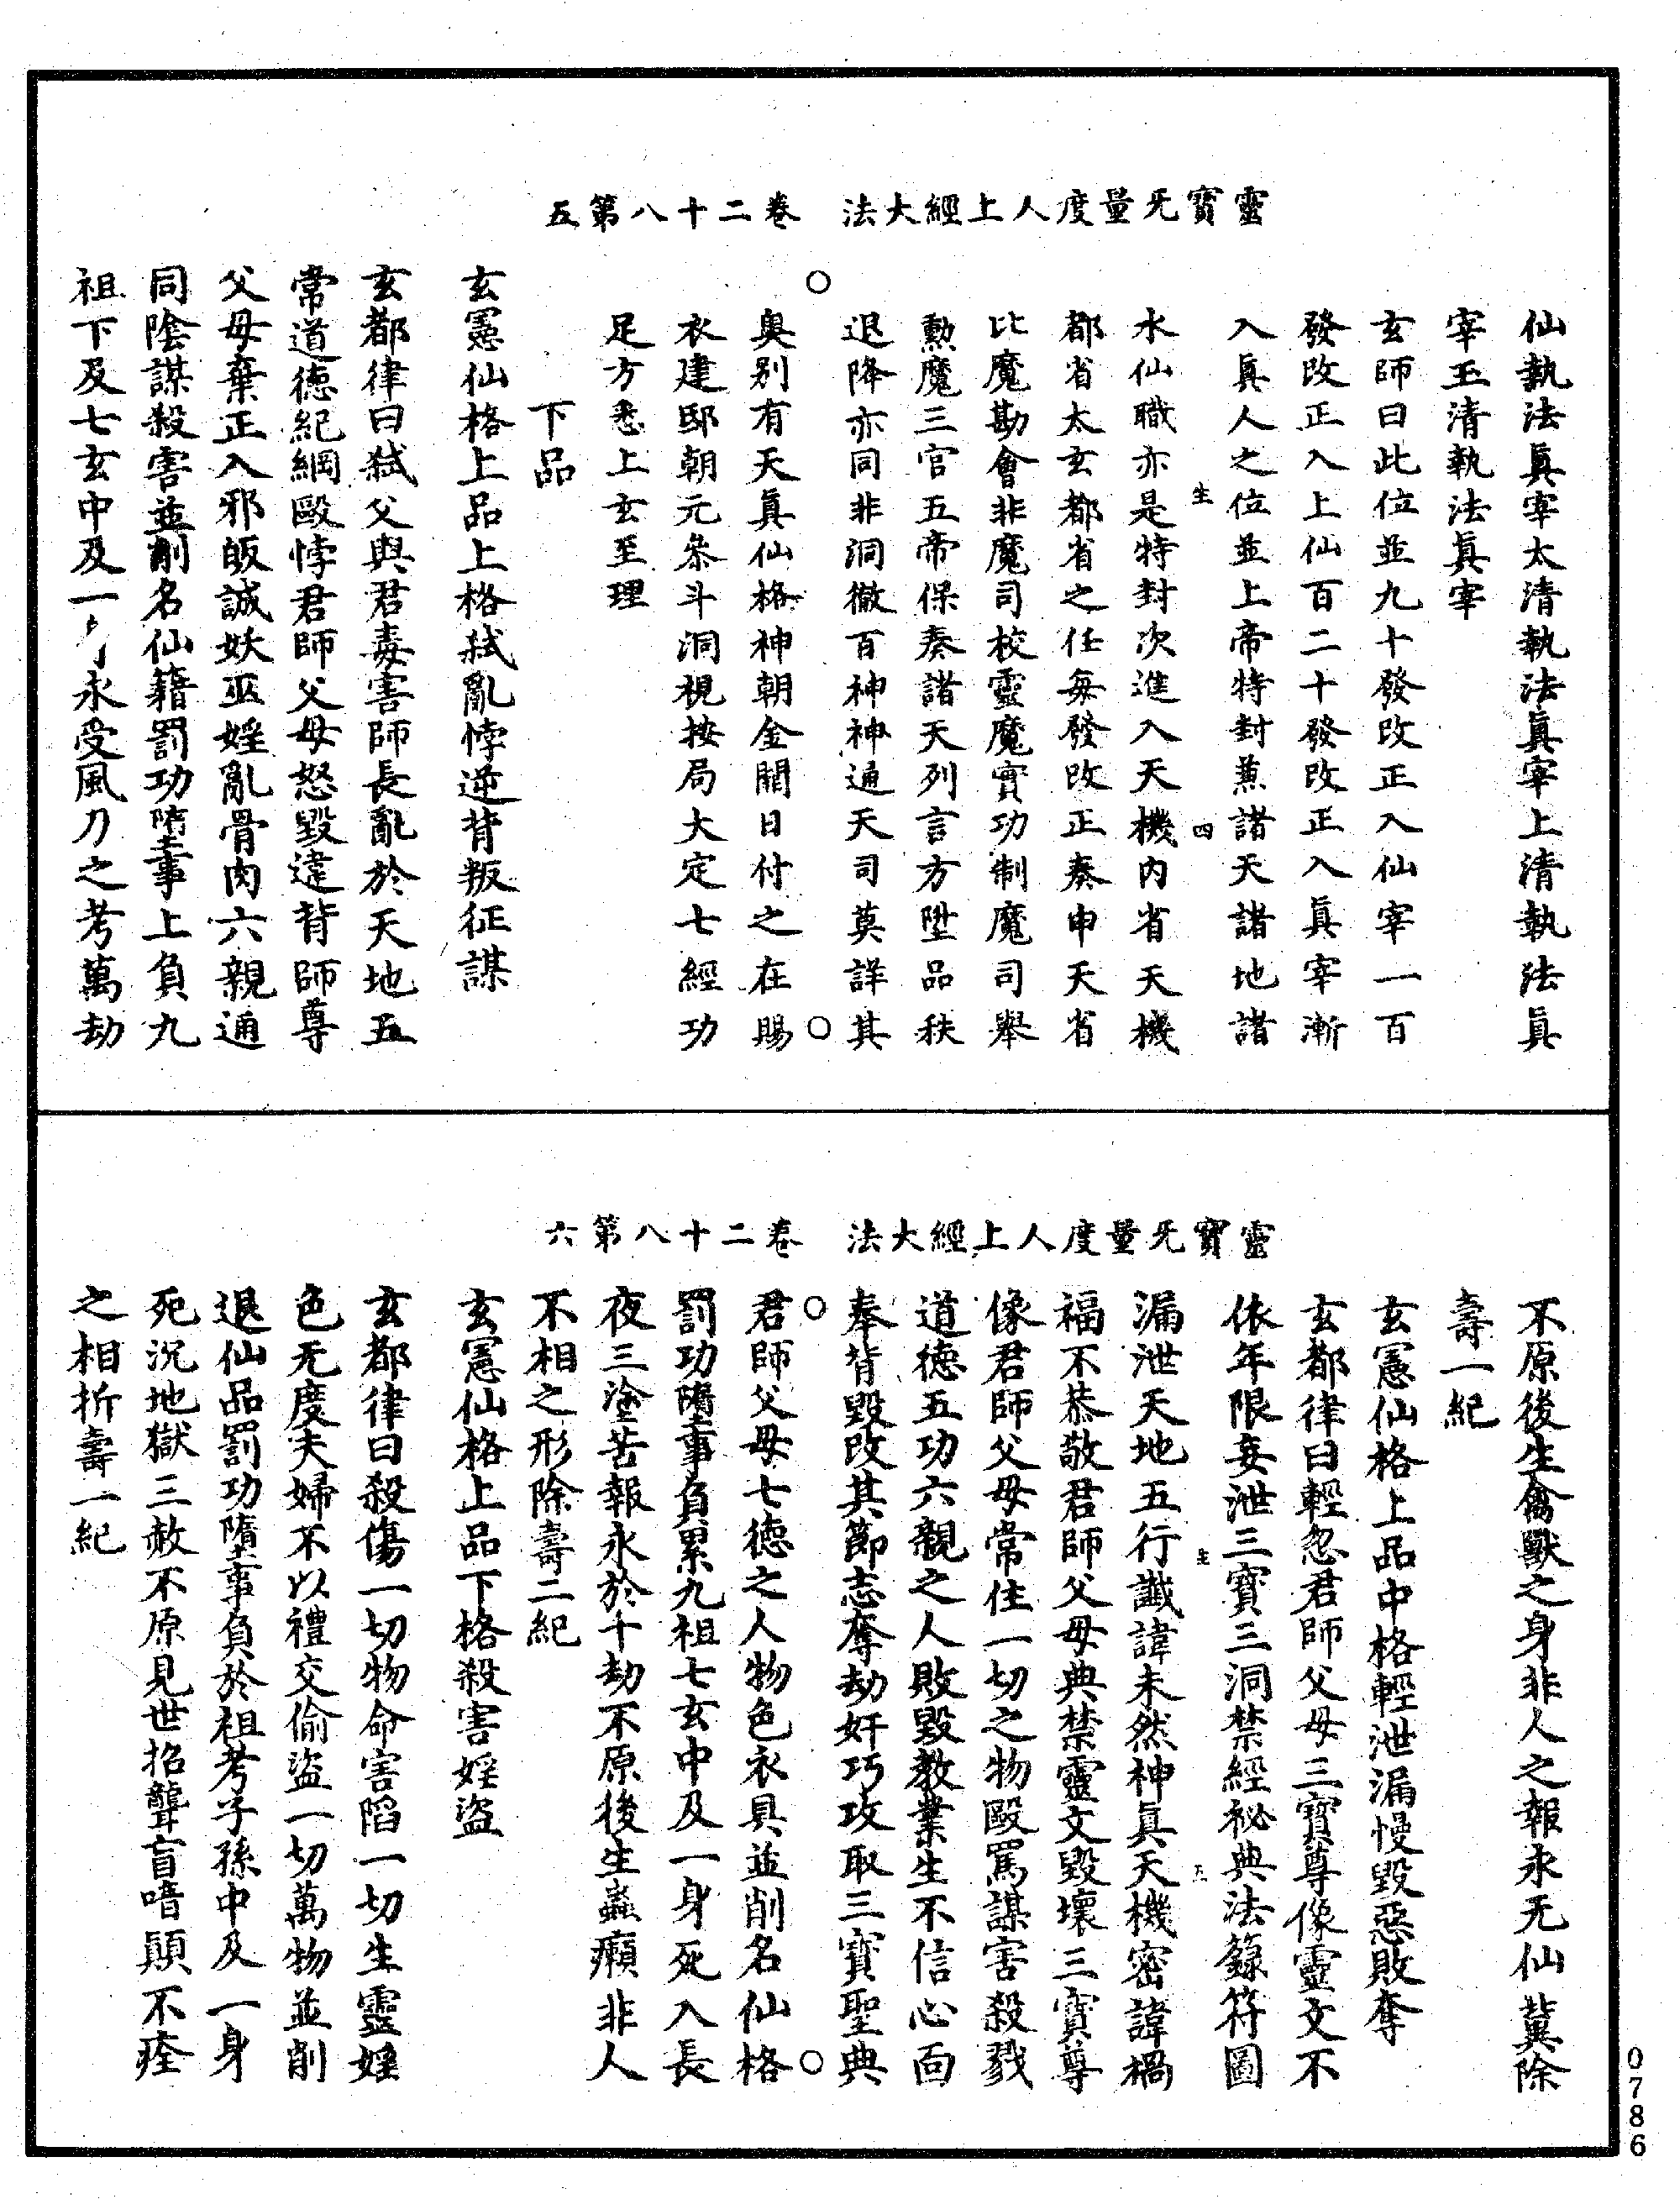 靈寶无量度人上經大法　卷二十八第五
仙執法眞宰太清執法眞宰上清執法眞
宰玉清執法眞宰
玄師曰此位並九十發改正入仙宰一百
發改正入上仙百二十發改正入眞宰漸
入眞人之位並上帝特封蒹諸天諸地諸
生　四
水仙職亦是特封次進入天機內省天機
都省太玄都省之任每發改正奏申天省
比魔勘會非魔司校靈魔實功制魔司舉
勳魔三官五帝保奏諸天列言方陞品秩
退降亦同非洞徹百神神通天司莫詳其
奥别有天眞仙格神朝金闕日付之在賜
衣建邸朝元叅斗洞視按局大定七經功
足方悉上玄至理
下品
玄憲仙格上品上格弑亂悖逆背叛征謀
玄都律曰弑父與君毒害師長亂於天地五
常道德紀綱毆悖君師父母怒毀違背師尊
父母棄正入邪皈誠妖巫婬亂骨肉六親通
同陰謀殺害並削名仙籍罰功墮事上負九
祖下及七玄中及一永受風刀之考萬劫
靈寶无量度人上經大法　卷二十八第六
不原後生禽獸之身非人之報永无仙冀除
壽一紀
玄憲仙格上品中格輕泄漏慢毀惡敗奪
玄都律曰輕忽君師父母三寶尊像靈文不
依年限妄泄三寶三洞禁經祕典法籙符圖
生
漏泄天地五行讖諱未然神眞天機密諱禍
福不恭敬君師父母典禁靈文毀壞三寶尊
像君師父母常住一切之物毆罵謀害殺戮
道德五功六親之人敗毀教業生不信心面
奉背毀改其節志奪劫奸巧攻取三寶聖典
君師父母七德之人物色衣具並削名仙格
罰功墮事負累九祖七玄中及一身死入長
夜三塗苦報永於十劫不原後生蟲癩非人
不相之形除壽二紀
玄憲仙格上品下格殺害婬盜
玄都律曰殺傷一切物命害陷一切生靈婬
色无度夫婦不以禮交偷盜一切萬物並削
退仙品罰功墮事負於祖考子孫中及一身
死況地獄三赦不原見世招聾盲喑顚不痊
之相折壽一紀
0786